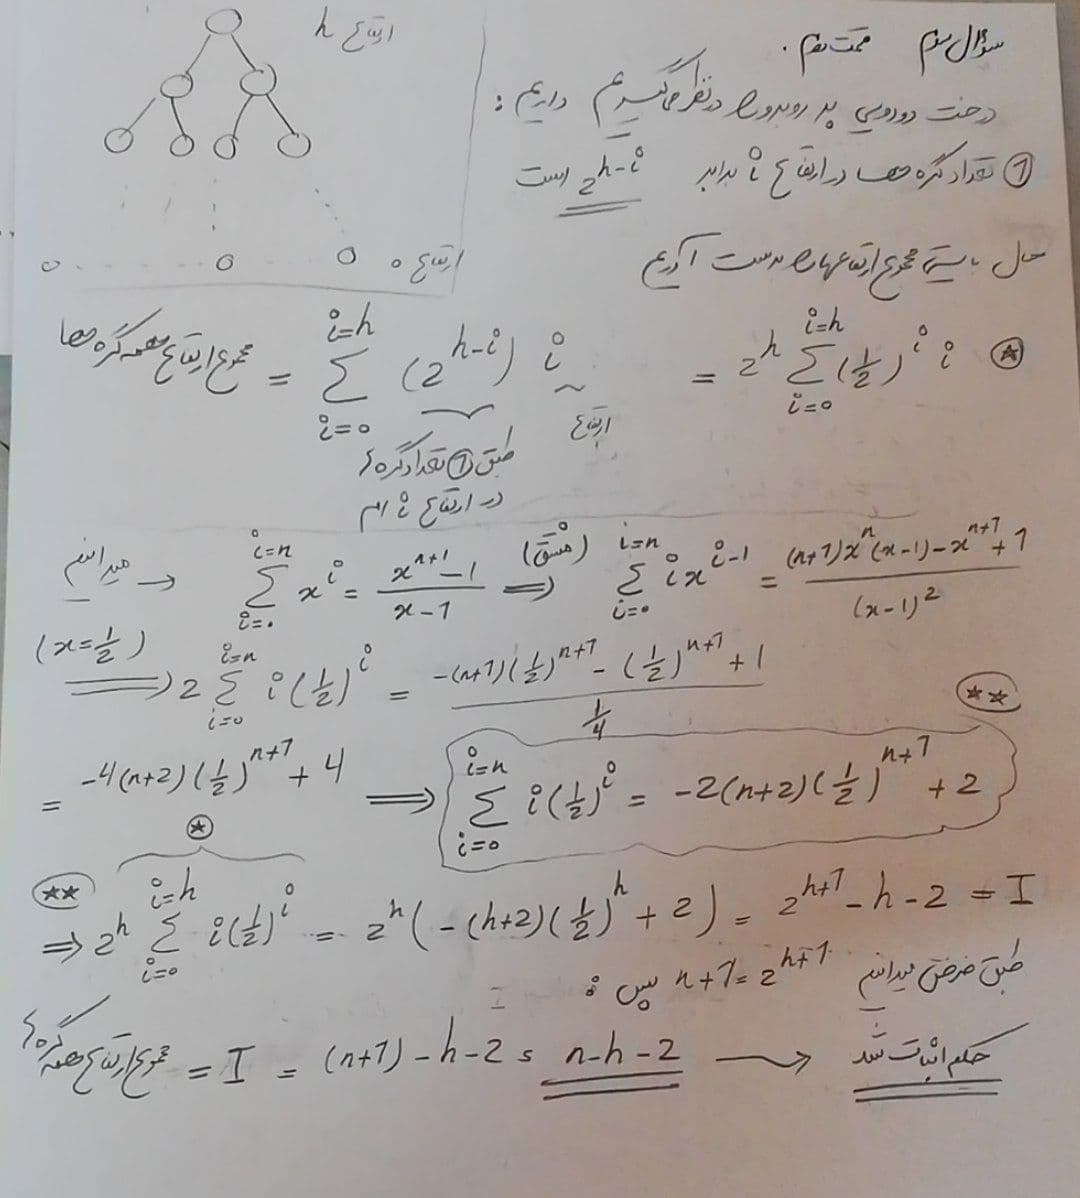 سؤال سوم قسمت دوم.
ارتفاع h
درخت دودویی پر روبرو را در نظر می‌گیریم داریم:
① تعداد گره ها در ارتفاع i برابر 2^{h-i} است
ارتفاع 0
حال بایستی مجموع ارتفاعها را بدست آوریم
مجموع ارتفاع همه گره ها = \sum_{i=0}^{i=h} (2^{h-i}) i = 2^h \sum_{i=0}^{i=h} (\frac{1}{2})^i i ⍟
ارتفاع
طبق ① تعداد گره های
در ارتفاع i ام
میدانیم → \sum_{i=0}^{i=n} x^i = \frac{x^{n+1}-1}{x-1} ⟹ (مشتق) \sum_{i=0}^{i=n} i x^{i-1} = \frac{(n+1)x^n(x-1)-x^{n+1}+1}{(x-1)^2}
(x=\frac{1}{2}) ⟹ 2 \sum_{i=0}^{i=n} i(\frac{1}{2})^i = \frac{-(n+1)(\frac{1}{2})^{n+1}-(\frac{1}{2})^{n+1}+1}{\frac{1}{4}}
= -4(n+2)(\frac{1}{2})^{n+1}+4 ⟹ \sum_{i=0}^{i=n} i(\frac{1}{2})^i = -2(n+2)(\frac{1}{2})^{n+1}+2 (**)
(**) ⟹ 2^h \sum_{i=0}^{i=h} i(\frac{1}{2})^i ⍟ = 2^h(-(h+2)(\frac{1}{2})^h+2) = 2^{h+1}-h-2 = I
طبق فرض میدانیم n+1=2^{h+1} پس:
مجموع ارتفاع همه گره ها = I = (n+1)-h-2 = n-h-2 → حکم اثبات شد